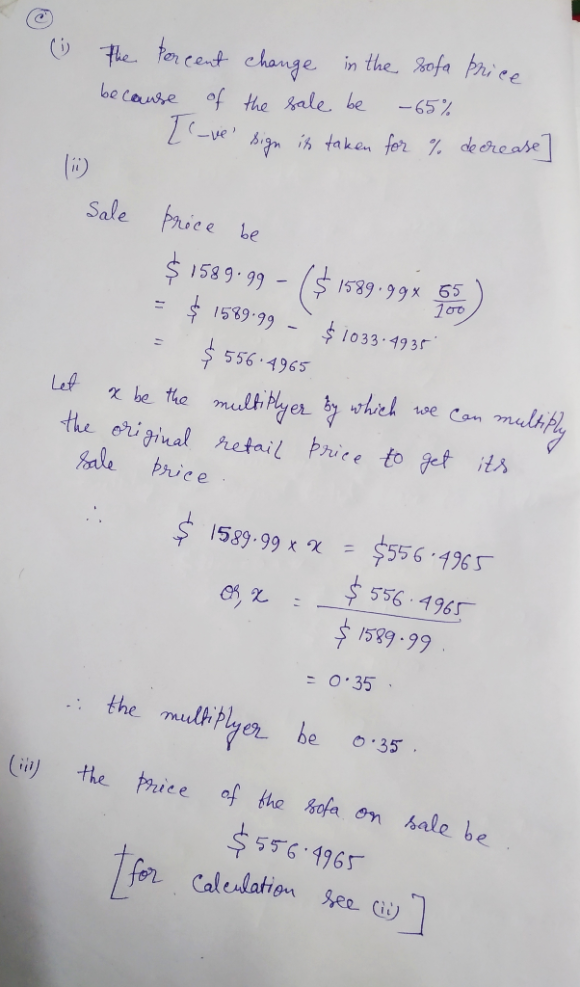 (c)
(i) The Percent change in the sofa price
because of the sale be -65%
[ '-ve' sign is taken for % decrease ]
(ii)
Sale price be
$ 1589.99 - ( $ 1589.99 x 65/100 )
= $ 1589.99 - $ 1033.4935
= $ 556.4965
Let x be the multiplyer by which we can multiply
the original retail price to get its
sale price.
∴ $ 1589.99 x x = $556.4965
or, x = $ 556.4965 / $ 1589.99.
= 0.35.
∴ the multiplyer be 0.35.
(iii) the price of the sofa on sale be
$ 556.4965
[ for calculation see (ii) ]